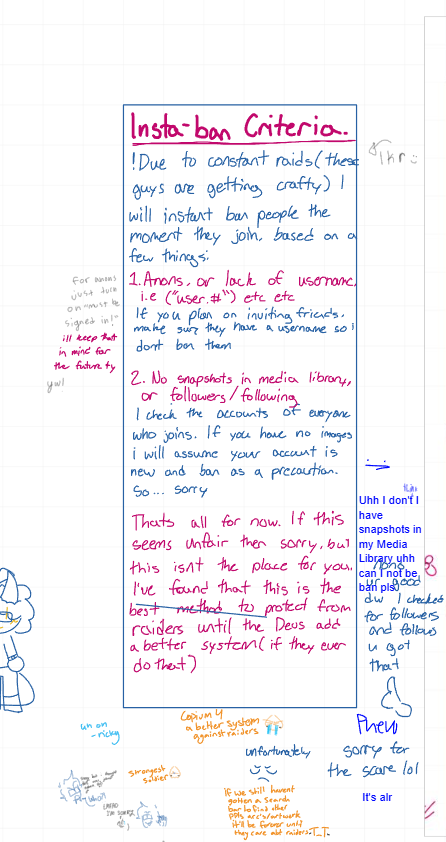 Insta-ban Criteria.
!Due to constant raids(these
guys are getting crafty) I
will instant ban people the
moment they join, based on a
few things:
1. Anons, or lack of username,
i.e ("user.#") etc etc
If you plan on inviting friends,
make sure they have a username so I
dont ban them
2. No snapshots in media library,
or followers/following
I check the accounts of everyone
who joins. If you have no images
i will assume your account is
new and ban as a precaution.
So... sorry
Thats all for now. If this
seems unfair then sorry, but
this isnt the place for you.
I've found that this is the
best method to protect from
raiders until the Devs add
a better system(if they ever
do that)
Ikr
For anons
just turn
on "must be
signed in!"
ill keep that
in mind for
the future ty
yw!
Uhh I don't I
have
snapshots in
my Media
Library uhh
can I not be
ban pls
nono
ur good
dw I checked
for followers
and follows
u got
that
Phew
sorry for
the scare lol
It's alr
uh oh
-ricky
Copium 4
a better system
against raiders
strongest
soldier
unfortunately
If we still havent
gotten a search
bar to find other
ppls arc's/artwork
it'll be forever until
they care abt raiders T_T
I'M SORRY